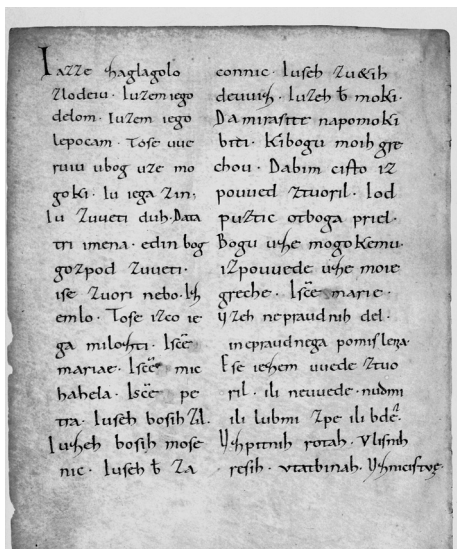 Iazze zaglagolo
zlodeiu. Iuzem iego
delom. Iuzem iego
lepocam. Tose uue
ruiu ubog uze mo
goki. Iu iega zin;
Iu zuueti duh. Data
tri imena. edin bog
gozpod zuueti.
ise zuori nebo. Iz
emlo. Tose izco ie
ga milozti. Isc̄e
mariae. Isc̄e mic
hahela. Isc̄e pe
tra. Iuseh bosih zil.
Iuzeh bosih mose
nic. Iuseh b̄ za
connic. Iuseh zu&ih
deuuiz. Iuzeh b̄ moki.
Da mirastite napomoki
biti. Kibogu moih gre
chou. Dabim cisto iz
pouued ztuoril. Iod
puztic otboga priel.
Bogu uze mogokemu.
izpouuede uze moie
greche. Isc̄e marie.
Vzeh nepraudnih del.
inepraudnega pomislena.
Ese iezem uuede ztuo
ril. ili neuuede. nudmi
ili lubmi zpe ili bde.
Vzpitnih rotah. Vlisnih
resih. vtatbinah. Vzmicistue.